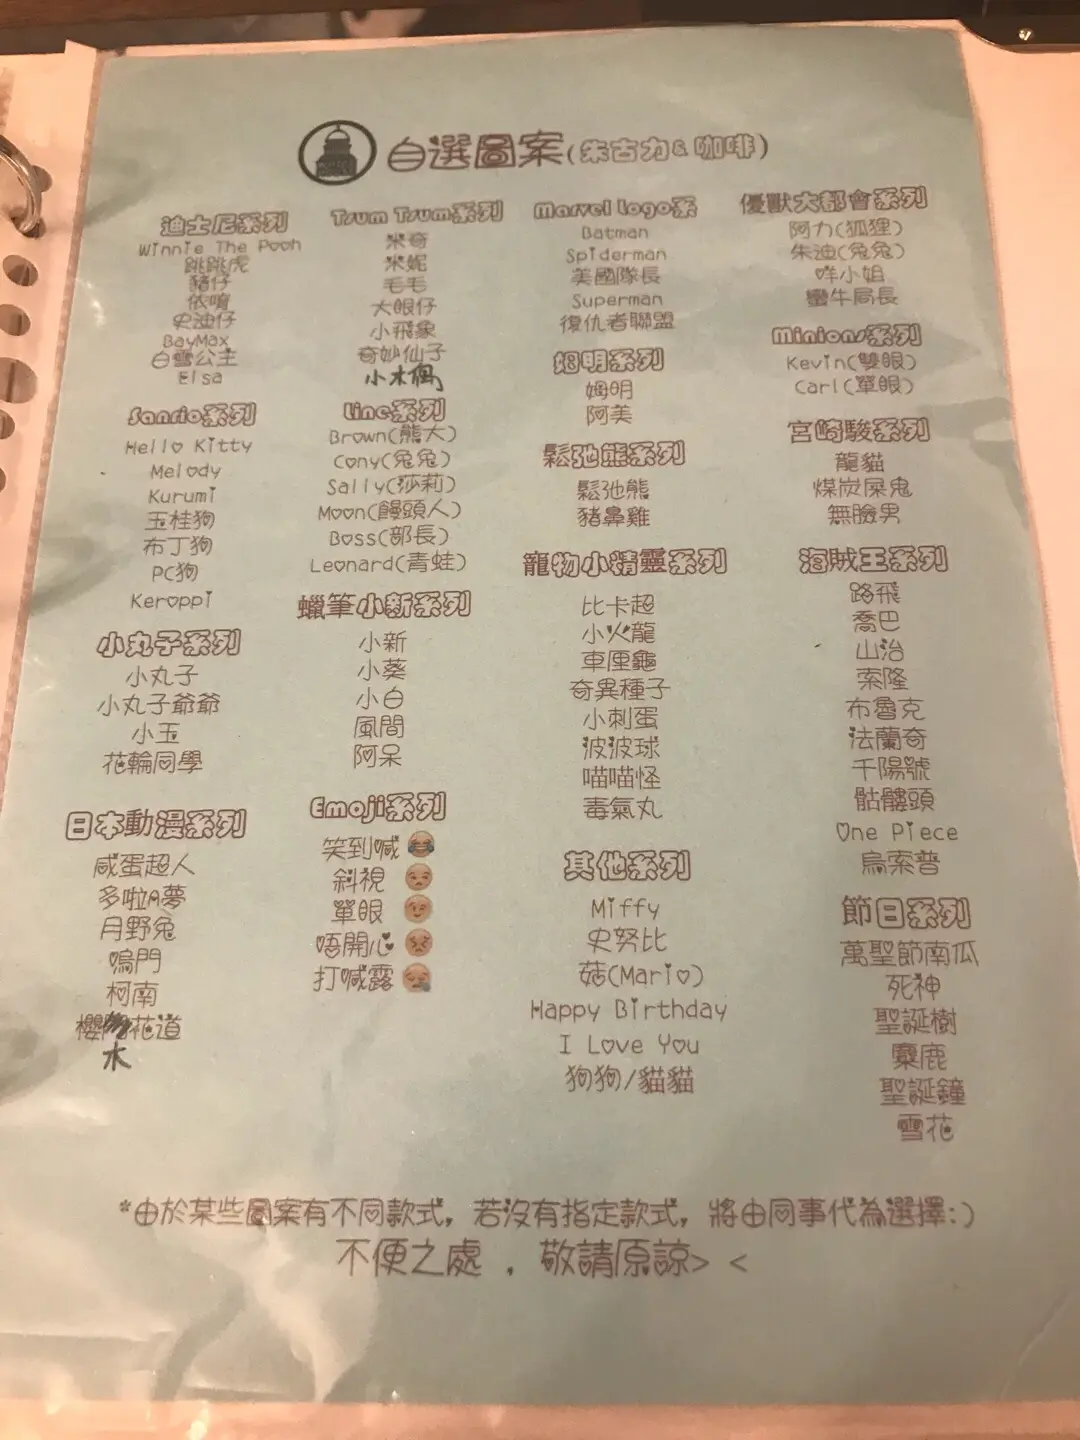 自選圖案(朱古力&咖啡)
迪士尼系列
Winnie The Pooh
跳跳虎
豬仔
依唷
史迪仔
BayMax
白雪公主
Elsa
Sanrio系列
Hello Kitty
Melody
Kurumi
玉桂狗
布丁狗
PC狗
Keroppi
小丸子系列
小丸子
小丸子爺爺
小玉
花輪同學
日本動漫系列
咸蛋超人
多啦A夢
月野兔
嗚門
柯南
櫻花道
木
Tsum Tsum系列
米奇
米妮
毛毛
大眼仔
小飛象
奇妙仙子
小木偶
Line系列
Brown(熊大)
Cony(兔兔)
Sally(莎莉)
Moon(饅頭人)
Boss(部長)
Leonard(青蛙)
蠟筆小新系列
小新
小葵
小白
風間
阿呆
Emoji系列
笑到喊😂
斜視😒
單眼😉
唔開心😣
打喊露😪
Marvel Logo系
Batman
Spiderman
美國隊長
Superman
復仇者聯盟
姆明系列
姆明
阿美
鬆弛熊系列
鬆弛熊
豬鼻雞
寵物小精靈系列
比卡超
小火龍
車厘龜
奇異種子
小刺蛋
波波球
喵喵怪
毒氣丸
其他系列
Miffy
史努比
菇(Mario)
Happy Birthday
I Love You
狗狗/貓貓
優獸大都會系列
阿力(狐狸)
朱迪(兔兔)
咩小姐
蠻牛局長
Minions系列
Kevin(雙眼)
Carl(單眼)
宮崎駿系列
龍貓
煤炭屎鬼
無臉男
海賊王系列
路飛
喬巴
山治
索隆
布魯克
法蘭奇
千陽號
骷髏頭
One Piece
烏索普
節日系列
萬聖節南瓜
死神
聖誕樹
麋鹿
聖誕鐘
雪花
*由於某些圖案有不同款式，若沒有指定款式，將由同事代為選擇:)
不便之處，敬請原諒> <